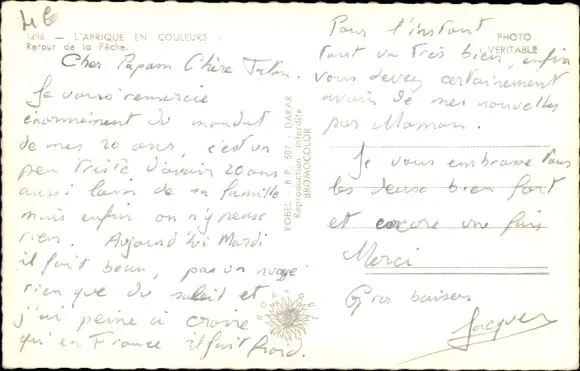 4€
1496 — L'AFRIQUE EN COULEURS -
Retour de la Pêche.
Cher Papam Chère Taton.
Je vous remercie
énormément du mandat
de mes 20 ans, c'est un
peu triste d'avoir 20 ans
aussi loin de sa famille
mais enfin on n'y peut
rien. Aujourd'hui Mardi
il fait beau, pas un nuage
rien que du soleil et
j'ai peine à croire
qu'en France il fait froid.
ROBEL - B.P. 507 - DAKAR
Reproduction interdite
BROMOCOLOR
PHOTO
VERITABLE
Pour l'instant
tout va très bien, enfin
vous devez certainement
avoir de mes nouvelles
par Maman.
Je vous embrasse tous
les deux bien fort
et encore une fois
Merci
Gros baisers
Jacques